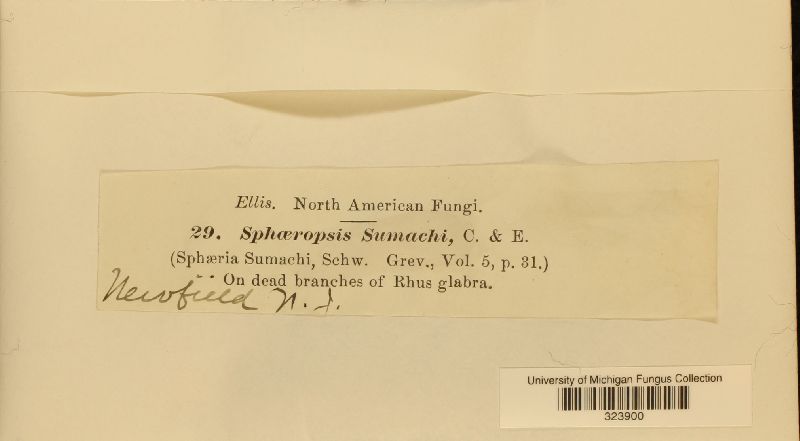 Ellis. North American Fungi.
29. Sphæropsis Sumachi, C. & E.
(Sphæria Sumachi, Schw. Grev., Vol. 5, p. 31.)
On dead branches of Rhus glabra.
Newfield N. J.
University of Michigan Fungus Collection
323900